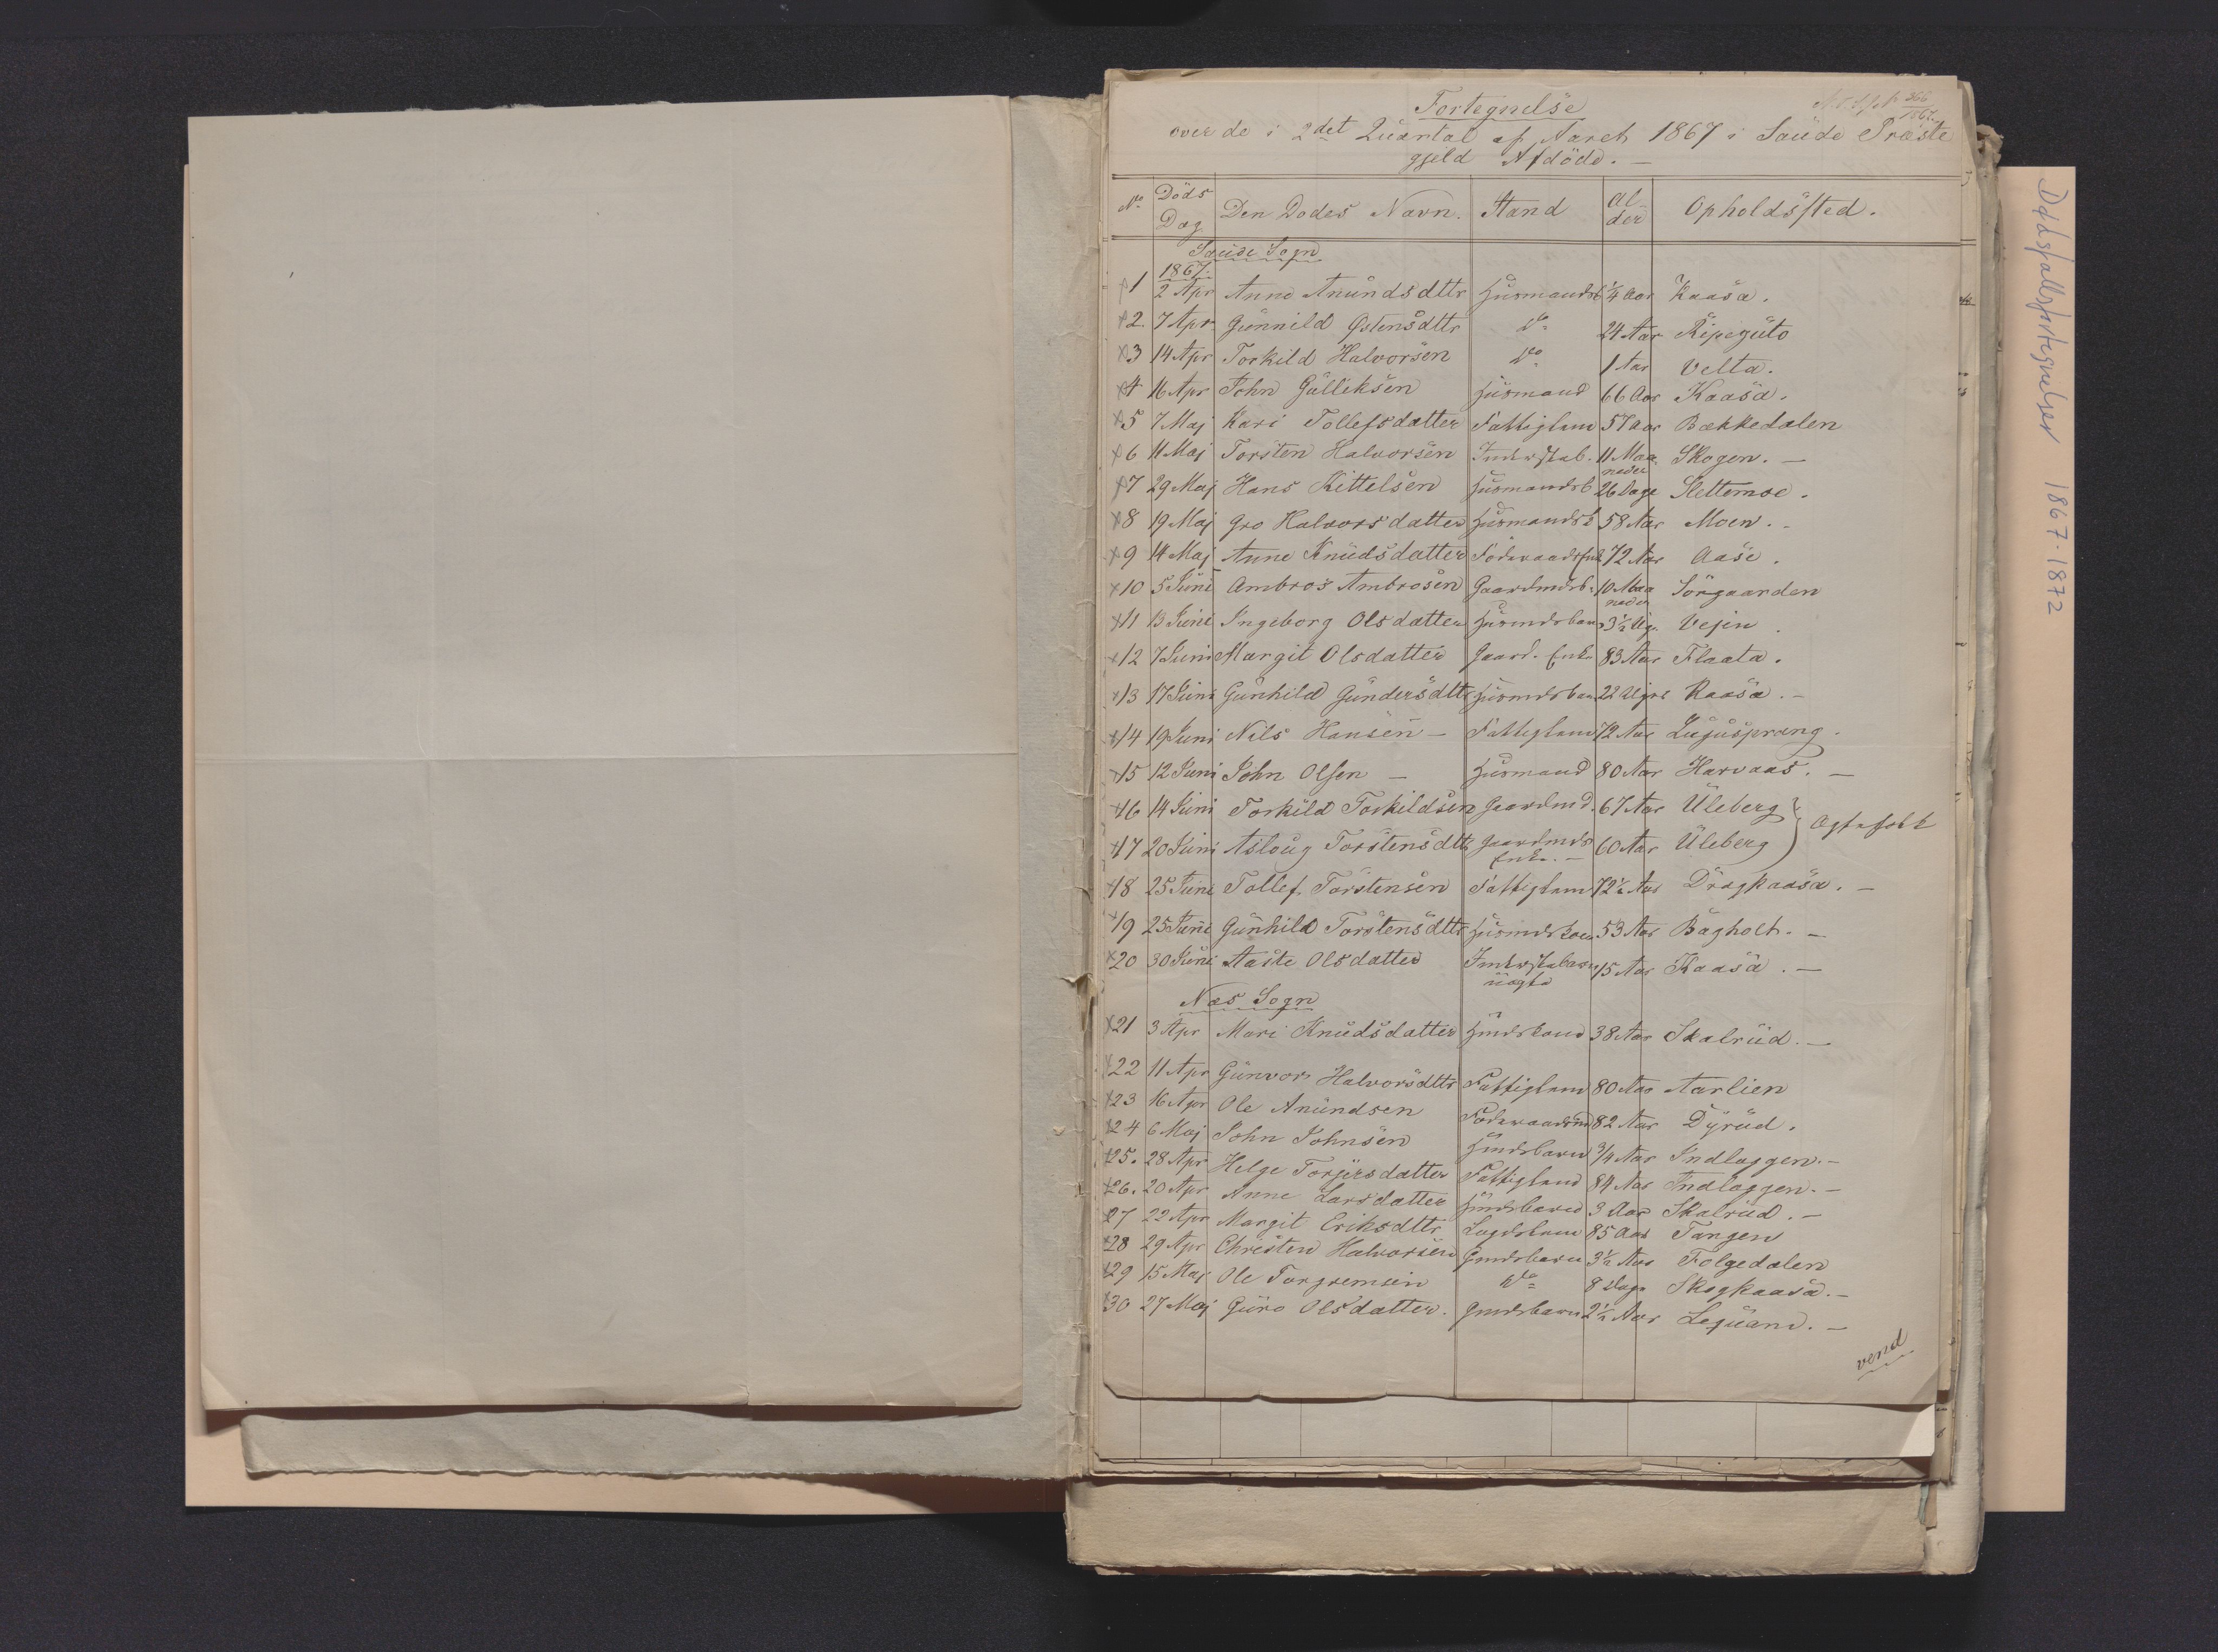 Fortegnelse
over de i 2det Quartal af Aaret 1867 i Saude Præste
gjeld Afdöde. —
No. Döds Dag Den Dødes Navn. Stand Al-der Opholdssted.
Saude Sogn
1867.
1 2 Apr Anne Anundsdttr Husmandsb 1/4 Aar Kaasa.
2. 7 Apr. Gunnild Østensdttr Do 24 Aar Ripeguto
3 14 Apr Torkild Halvorsen Do 1 Aar Velta.
4 16 Apr John Gulliksen Husmand 66 Aar Kaasa.
5 7 Maj Kari Tollefsdatter Fattiglem 57 Aar Bækkedalen
6 11 Maj Torsten Halvorsen Inderstab. 11 Maa-neder Skogen. —
7 29 Maj Hans Kittelsen Husmandsb 26 Dage Slettemoe.
8 19 Maj Gro Halvorsdatter Husmandsk 58 Aar Moen. -
9 14 Maj Anne Knudsdatter 72 Aar Aase.
10 5 Juni Ambros Ambrosen Gaardmdsb. 10 Maa neder Sörgaarden
11 13 Juni Ingeborg Olsdatter Husmdsbarn 3 1/2 Ug. Vejen.
12 7 Juni Margit Olsdatter Gaard. Enke 83 Aar Flaata.
13 17 Juni Gunhild Gundersdttr Husmdsbarn 22 Uger Kaasa. -
14 19 Juni Nils Hansen - Fattiglem 72 Aar
15 12 Juni John Olsen — Husmand 80 Aar Harvaas. —
16 14 Juni Torkild Torkildsen Gaardmd. 67 Aar Uleberg } Egtefolk
17 20 Juni Asloug Torstensdttr Gaardmds Enke. - 60 Aar Uleberg
18 25 Juni Tollef Torstensen Fattiglem 72 1/2 Aar Dragkaasa. —
19 25 Juni Gunhild Torstensdttr Husmdskone 53 Aar Bagholt. —
20 30 Juni Aaste Olsdatter Inderstabarn uægte 15 Aar Kaasa. —
Næs Sogn
21 3 Apr Mari Knudsdatter Hmdskone 38 Aar Skalrud. —
22 11 Apr Gunvor Halvorsdttr Fattiglem 80 Aar Aarlien
23 16 Apr Ole Anundsen Föderaadsmd 82 Aar Dyrud.
24 6 Maj John Johnsen Hmdsbarn 3/4 Aar Indlaggen. -
25. 28 Apr Helge Torjersdatter Fattiglem 84 Aar Indlaggen. -
26. 20 Apr Anne Larsdatter Hmdsbarn 3 Aar Skalrud. -
27 22 Apr Margit Eriksdttr Lægdslem 85 Aar Tangen
28 29 Apr Christen Halvorsen Gmdsbarn 3 1/2 Aar Folgedalen
29 15 Maj Ole Torgremsen Do 8 Dage Skogkaasa. -
30 27 Maj Guro Olsdatter. Gmdsbarn 2 1/2 Aar —
vend
Dødsfallsfortegnelser 1867-1872